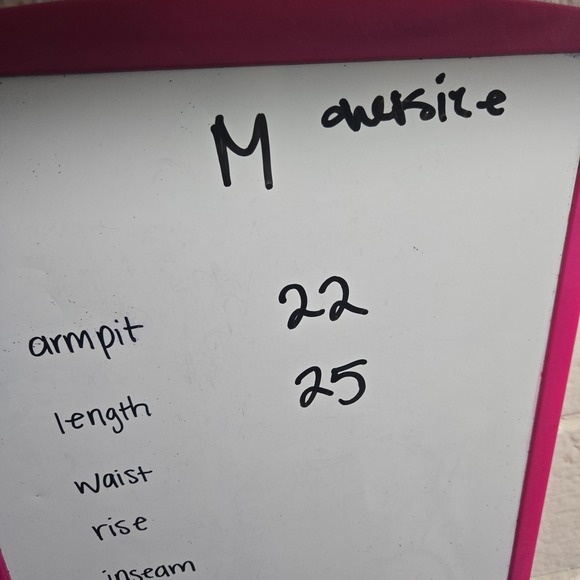 M oversize
armpit 22
length 25
waist
rise
inseam